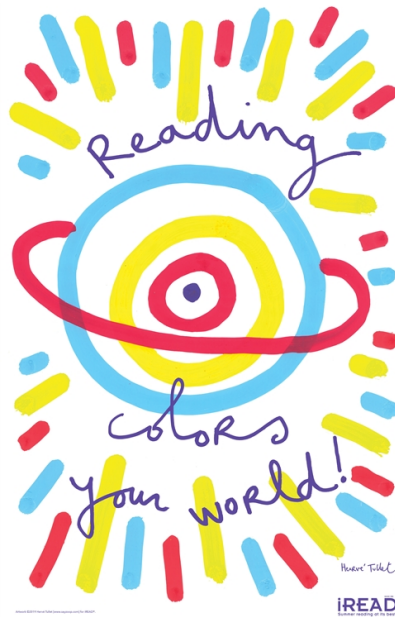 Reading
colors
your world!
Hervé Tullet
iREAD
Summer reading at its best